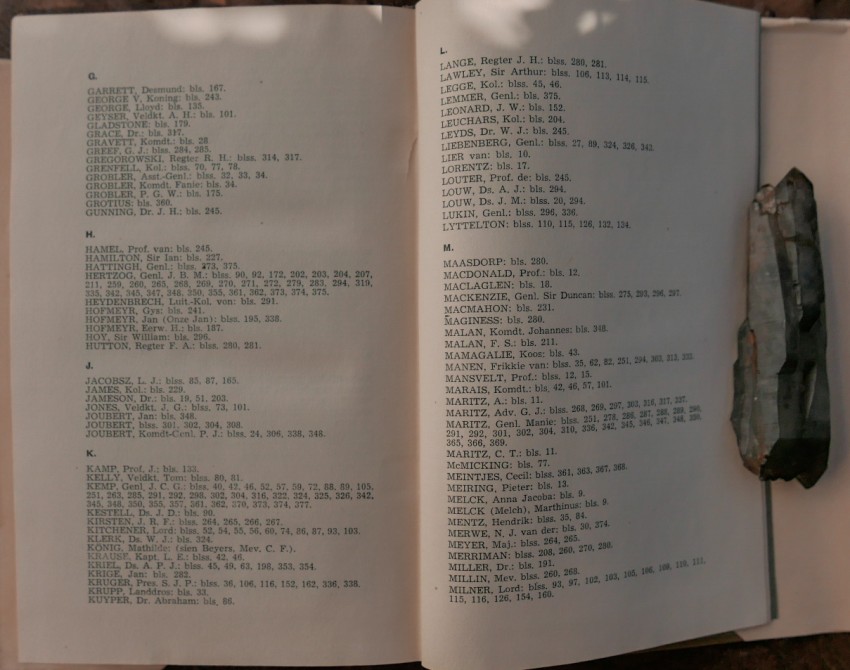 G.
GARRETT, Desmund: bls. 167.
GEORGE V, Koning: bls. 243.
GEORGE, Lloyd: bls. 135.
GEYSER, Veldkt. A. H.: bls. 101.
GLADSTONE: bls. 179.
GRACE, Dr.: bls.
GRAVETT, Komdt.: bls. 28
GREEF, G. J.: blss. 284, 285.
GREGOROWSKI, Regter R. H.: blss. 314, 317.
GRENFELL, Kol.: blss. 70, 77, 78.
GROBLER, Asst.-Genl.: blss. 32, 33, 34.
GROBLER, Komdt. Fanie: bls. 34.
GROBLER, P. G. W.: bls. 175.
GROTIUS: bls. 360.
GUNNING, Dr. J. H.: bls. 245.
H.
HAMEL, Prof. van: bls. 245.
HAMILTON, Sir Ian: bls. 227.
HATTINGH, Genl.: blss. 373, 375.
HERTZOG, Genl. J. B. M.: blss. 90, 92, 172, 202, 203, 204, 207,
211, 259, 260, 265, 268, 269, 270, 271, 272, 279, 283, 294, 319,
335, 342, 345, 347, 348, 350, 355, 361, 362, 373, 374, 375.
HEYDENBRECH, Luit-Kol. von: bls. 291.
HOFMEYR, Gys: bls. 241.
HOFMEYR, Jan (Onze Jan): blss. 195, 338.
HOFMEYR, Eerw. H.: bls. 187.
HOY, Sir William: bls. 296.
HUTTON, Regter F. A.: blss. 280, 281.
J.
JACOBSZ, L. J.: blss. 85, 87, 165.
JAMES, Kol.: bls. 229.
JAMESON, Dr.: bls. 19, 51, 203.
JONES, Veldkt. J. G.: blss. 73, 101.
JOUBERT, Jan: bls. 348.
JOUBERT, blss. 301, 302, 304, 308.
JOUBERT, Komdt-Genl. P. J.: blss. 24, 306, 338, 348.
K.
KAMP, Prof, J.: bls. 133.
KELLY, Veldkt. Tom: blss. 80, 81.
KEMP, Genl. J. C. G.: blss. 40, 42, 46, 52, 57, 59, 72, 88, 89, 105,
251, 263, 285, 291, 292, 298, 302, 304, 316, 322, 324, 325, 326, 342,
345, 348, 350, 355, 357, 361, 362, 370, 373, 374, 377.
KESTELL, Ds. J. D.: bls. 90.
KIRSTEN, J. R. F.: blss. 264, 265, 266, 267.
KITCHENER, Lord: blss. 52, 54, 55, 56, 60, 74, 86, 87, 93, 103.
KLERK, Ds. W. J.: bls. 324.
KÖNIG, Mathilde: (sien Beyers, Mev. C. F.).
KRAUSE, Kapt. L. E.: blss. 42, 46.
KRIEL, Ds. A. P. J.: blss. 45, 49, 63, 198, 353, 354.
KRIGE, Jan: bls. 282.
KRUGER, Pres. S. J. P.: blss. 36, 106, 116, 152, 162, 336, 338.
KRUPP, Landdros: bls. 33.
KUYPER, Dr. Abraham: bls. 86.
L.
LANGE, Regter J. H.: blss. 280, 281.
LAWLEY, Sir Arthur: blss. 106, 113, 114, 115.
LEGGE, Kol.: blss. 45, 46.
LEMMER, Genl.: bls. 375.
LEONARD, J. W.: bls. 152.
LEUCHARS, Kol.: bls. 204.
LEYDS, Dr. W. J.: bls. 245.
LIEBENBERG, Genl.: blss. 27, 89, 324, 326, 342.
LIER van: bls. 10.
LORENTZ: bls. 17.
LOUTER, Prof. de: bls. 245.
LOUW, Ds. A. J.: bls. 294.
LOUW, Ds. J. M.: blss. 20, 294.
LUKIN, Genl.: blss. 296, 336.
LYTTELTON: blss. 110, 115, 126, 132, 134.
M.
MAASDORP: bls. 280.
MACDONALD, Prof.: bls. 12.
MACLAGLEN: bls. 18.
MACKENZIE, Genl. Sir Duncan: blss. 275, 293, 296, 297.
MACMAHON: bls. 231.
MAGINESS: bls. 280.
MALAN, Komdt. Johannes: bls. 348.
MALAN, F. S.: bls. 211.
MAMAGALIE, Koos: bls. 43.
MANEN, Frikkie van: blss. 35, 62, 82, 251, 294, 303,
MANSVELT, Prof.: blss. 12, 15.
MARAIS, Komdt.: bls. 42, 46, 57, 101.
MARITZ, A.: bls. 11.
MARITZ, Adv. G. J.: blss. 268, 269, 297, 303, 316, 317, 337.
MARITZ, Genl. Manie: blss. 251, 278, 286, 287, 288, 289, 290,
291, 292, 301, 302, 304, 310, 336, 342, 345, 346, 347, 348, 350,
365, 366, 369.
MARITZ, C. T.: bls. 11.
McMICKING: bls. 77.
MEINTJES, Cecil: blss. 361, 363, 367, 368.
MEIRING, Pieter: bls. 13.
MELCK, Anna Jacoba: bls. 9.
MELCK (Melch), Marthinus: bls. 9.
MENTZ, Hendrik: blss. 35, 84.
MERWE, N. J. van der: bls. 30, 374.
MEYER, Maj.: blss. 264, 265.
MERRIMAN: blss. 208, 260, 270, 290.
MILLER, Dr.: bls. 191.
MILLIN, Mev. blss. 260, 268.
MILNER, Lord: blss. 93, 97, 102, 103, 105, 106, 108, 110, 111,
115, 116, 126, 154, 160.